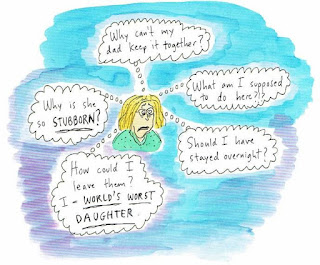 Why can't my
dad keep it together?
What am I supposed
to do here?!?
Why is she
so STUBBORN?
Should I have
stayed overnight?
How could I
leave them?
I - WORLD'S WORST
DAUGHTER